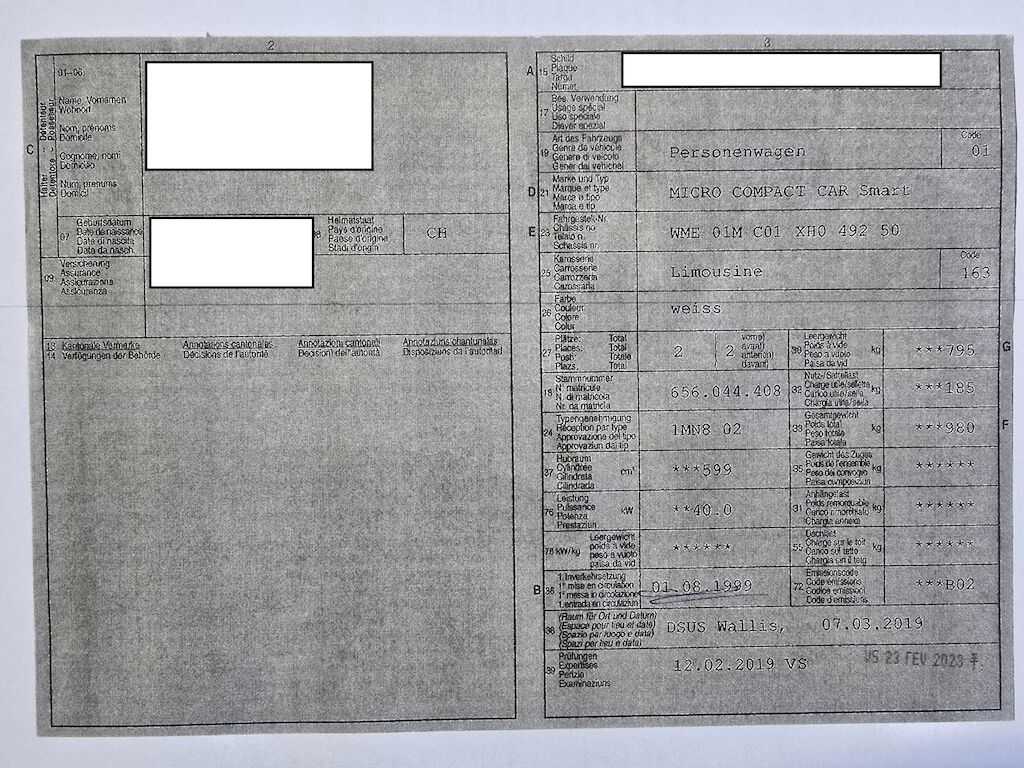 2
01-06
Name, Vornamen
Wohnort
Nom, prénoms
Domicile
Cognome, nomi
Domicilio
Num, prenums
Domicil
C
Halter
Détenteur
Geburtsdatum
Date de naissance
Data di nascita
Data da nasch.
07
Heimatstaat
Pays d'origine
Paese d'origine
Stadi d'origin
CH
09
Versicherung
Assurance
Assicurazione
Assicuranza
13
14
Kantonale Vermerke
Verfügungen der Behörde
Annotations cantonales
Décisions de l'autorité
Annotazioni cantonali
Decisioni dell'autorità
Annotaziuns chantunalas
Disposiziuns da l'autoritad
3
A 15
Schild
Plaque
Targa
Numer
17
Bes. Verwendung
Usage spécial
Uso speciale
Diever spezial
19
Art des Fahrzeugs
Genre de véhicule
Genere di veicolo
Gener dal vehichel
Personenwagen
Code
01
D 21
Marke und Typ
Marque et type
Marca e tipo
Marca e tip
MICRO COMPACT CAR Smart
E 23
Fahrgestell-Nr.
Châssis no
Telaio n.
Schassis nr.
WME 01M C01 XH0 492 50
25
Karosserie
Carrosserie
Carrozzeria
Carossaria
Limousine
Code
163
26
Farbe
Couleur
Colore
Colur
weiss
27
Plätze: Total
Places: Total
Posti: Totale
Plazs: Total
2
2
vorne)
avant)
anteriori)
davant)
30
Leergewicht
Poids à vide
Peso a vuoto
Paisa da vid
kg
***795
G
18
Stammnummer
N° matricule
N. di matricola
Nr. da matricla
656.044.408
32
Nutz-/Sattellast
Charge utile/sellette
Carico utile/sella
Chargia utila/sella
kg
***185
24
Typengenehmigung
Réception par type
Approvazione del tipo
Approvaziun dal tip
1MN8 02
33
Gesamtgewicht
Poids total
Peso totale
Paisa totala
kg
***980
F
37
Hubraum
Cylindrée
Cilindrata
Cilindrada
cm³
***599
35
Gewicht des Zuges
Poids de l'ensemble
Peso del convoglio
Paisa cumposiziun
kg
******
76
Leistung
Puissance
Potenza
Prestaziun
kW
**40.0
31
Anhängelast
Poids remorquable
Carico rimorchiato
Chargia annexa
kg
******
78 kW/kg
Leergewicht
poids à vide
peso a vuoto
paisa da vid
******
55
Dachlast
Charge sur le toit
Carico sul tetto
Chargia sin il tetg
kg
******
B 36
1. Inverkehrsetzung
1re mise en circulation
1a messa in circolazione
1. entrada en circulaziun
01.08.1999
72
Emissionscode
Code émissions
Codice emissioni
Code d'emissiuns
***B02
38
(Raum für Ort und Datum)
(Espace pour lieu et date)
(Spazio per luogo e data)
(Spazi per lieu e data)
DSUS Wallis, 07.03.2019
39
Prüfungen
Expertises
Perizie
Examinaziuns
12.02.2019 VS
VS 23 FEV 2023